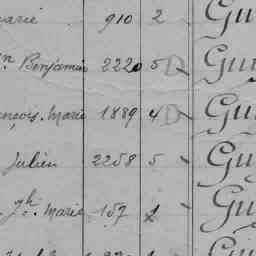 arie 910 2 Gu
n Benjamin 2220 5 D Gui
nçois. Marie 1889 4 D Gu
Julien 2258 5 Gu
Jh. Marie 157 1 Gu